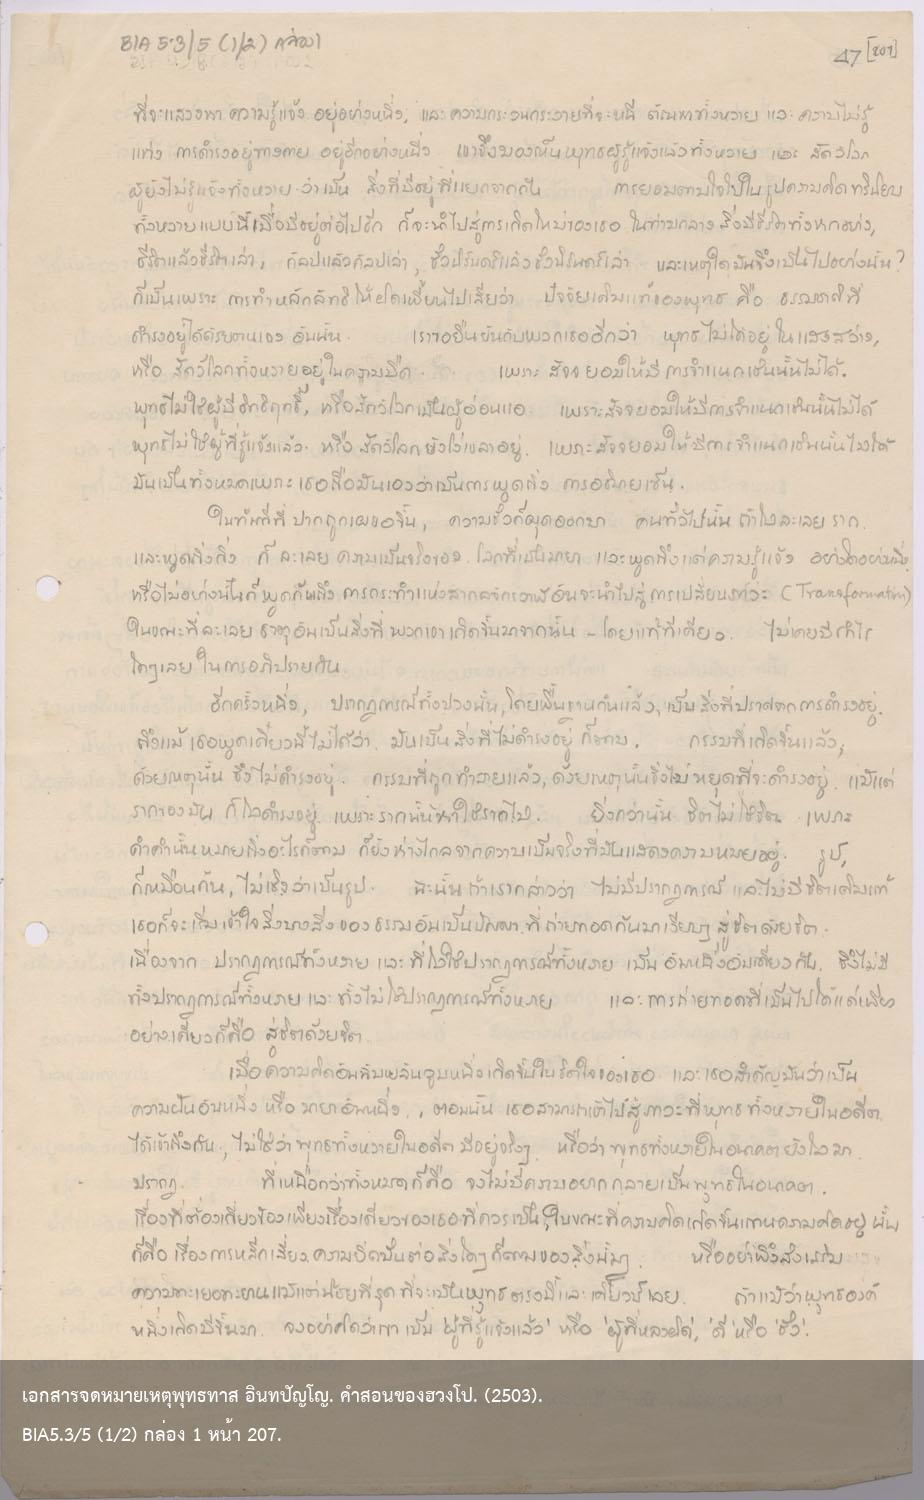 BIA 5.3/5 (1/2) กล่อง 1
47 [207]
ที่จะแสวงหา ความรู้แจ้ง อยู่อย่างหนึ่ง, และ ความกระวนกระวายที่จะหนี ตัณหาทั้งหลาย และ ความไม่รู้
แห่ง การดำรงอยู่ทางกาย อยู่อีกอย่างหนึ่ง เขาจึงมองเห็นพุทธผู้รู้แจ้งแล้วทั้งหลาย และ สัตว์โลก
ผู้ยังไม่รู้แจ้งทั้งหลาย ว่าเป็น สิ่งที่มีอยู่ที่แยกจากกัน การยอมตามใจไปในรูปความคิดทวินิยม
ทั้งหลายแบบนี้เมื่อมีอยู่ต่อไปอีก ก็จะนำไปสู่การเกิดใหม่ของเธอ ในท่ามกลาง สิ่งมีชีวิตทั้งหกอย่าง,
ชีวิตแล้วชีวิตเล่า, กัลปแล้วกัลปเล่า, ชั่วนิรันดร์แล้วชั่วนิรันดร์เล่า และเหตุใดมันจึงเป็นไปอย่างนั้น?
ก็เป็นเพราะ การทำหลักลัทธิให้ผิดเพี้ยนไปเสียว่า ปัจจัยเดิมแท้ของพุทธ คือ ธรรมชาติที่
ดำรงอยู่ได้ด้วยตนเอง อันนั้น เราขอยืนยันกับพวกเธออีกว่า พุทธไม่ได้อยู่ในแสงสว่าง,
หรือ สัตว์โลกทั้งหลายอยู่ในความมืด เพราะ สัจจยอมให้มีการจำแนกเช่นนั้นไม่ได้.
พุทธไม่ใช่ผู้มีอิทธิฤทธิ์, หรือสัตว์โลกเป็นผู้อ่อนแอ เพราะสัจจยอมให้มีการจำแนกเช่นนั้นไม่ได้
พุทธไม่ใช่ผู้ที่รู้แจ้งแล้ว หรือ สัตว์โลกยังโง่เขลาอยู่. เพราะสัจจยอมให้มีการจำแนกเช่นนั้นไม่ได้
มันเป็นทั้งหมดเพราะ เธอถือมันเองว่าเป็นการพูดถึง การอธิบายเซ็น.
ในทันทีที่ ปากถูกเผยอขึ้น, ความชั่วก็ผุดออกมา คนทั่วไปนั้น ถ้าไม่ละเลย ราก
และพูดถึงกิ่ง ก็ ละเลย ความเป็นจริงของ โลกที่เป็นมายา และพูดถึงแต่ความรู้แจ้ง อย่างใดอย่างหนึ่ง
หรือไม่อย่างนั้นก็พูดกันถึง การกระทำแห่งสากลจักรวาฬอันจะนำไปสู่ การเปลี่ยนภาวะ (Transformation)
ในขณะที่ละเลย ธาตุอันเป็นสิ่งที่ พวกเขาเกิดขึ้นมาจากนั้น – โดยแท้ทีเดียว. ไม่เคยมีกำไร
ใดๆเลย ในการอภิปรายกัน
อีกครั้งหนึ่ง, ปรากฏการณ์ทั้งปวงนั้น,โดยพื้นฐานกันแล้ว, เป็นสิ่งที่ปราศจากการดำรงอยู่,
ถึงแม้ เธอพูดเดี๋ยวนี้ไม่ได้ว่า มันเป็น สิ่งที่ไม่ดำรงอยู่ ก็ตาม. กรรมที่เกิดขึ้นแล้ว,
ด้วยเหตุนั้น จึงไม่ดำรงอยู่. กรรมที่ถูกทำลายแล้ว, ด้วยเหตุนั้นจึงไม่หยุดที่จะดำรงอยู่. แม้แต่
รากของมัน ก็ไม่ดำรงอยู่, เพราะรากนั้นหาใช่รากไม่. ยิ่งกว่านั้น จิตไม่ใช่จิต เพราะ
คำคำนั้นหมายถึงอะไรก็ตาม ก็ยังห่างไกลจากความเป็นจริงที่มันแสดงความหมายอยู่. รูป,
ก็เหมือนกัน, ไม่เชิงว่าเป็นรูป. ฉะนั้น ถ้าเรากล่าวว่า ไม่มีปรากฏการณ์ และไม่มีจิตเดิมแท้
เธอก็จะเริ่มเข้าใจสิ่งบางสิ่งของ ธรรมอันเป็นปัญญาที่ถ่ายทอดกันมาเงียบๆ สู่จิตด้วยจิต.
เนื่องจาก ปรากฏการณ์ทั้งหลาย และ ที่ไม่ใช่ปรากฏการณ์ทั้งหลาย เป็น อันหนึ่งอันเดียวกัน. จึงไม่มี
ทั้งปรากฏการณ์ทั้งหลาย และ ทั้งไม่ใช่ปรากฏการณ์ทั้งหลาย และ การถ่ายทอดที่เป็นไปได้แต่เพียง
อย่างเดียวก็คือ สู่จิตด้วยจิต
เมื่อ ความคิดอันฉับพลันวูบหนึ่งเกิดขึ้นในจิตใจของเธอ และเธอสำคัญมันว่าเป็น
ความฝันอันหนึ่ง หรือ มายาอันหนึ่ง, ตอนนั้น เธอสามารถเข้าไปสู่ภาวะที่พุทธทั้งหลายในอดีต
ได้เข้าถึงกัน, ไม่ใช่ว่า พุทธทั้งหลายในอดีต มีอยู่จริงๆ หรือว่า พุทธทั้งหลายในอนาคตยังไม่มา
ปรากฏ. ที่เหนือกว่าทั้งหมดก็คือ จงไม่มีความอยากกลายเป็นพุทธในอนาคต.
เรื่องที่ต้องเกี่ยวข้องเพียงเรื่องเดียวของเธอที่ควรเป็น, ในขณะที่ความคิดเกิดขึ้นแทนความคิดอยู่ นั้น
ก็คือ เรื่องการหลีกเลี่ยง ความยึดมั่นต่อสิ่งใดๆ ก็ตามของสิ่งนั้นๆ. หรืออย่าพึงส่งเสริม
ความทะเยอทะยานแม้แต่น้อยที่สุด ที่จะเป็นพุทธ ตรงนี้และเดี๋ยวนี้เลย. ถ้าแม้ว่าพุทธองค์
หนึ่งเกิดมีขึ้นมา จงอย่าคิดว่าเขา เป็น 'ผู้ที่รู้แจ้งแล้ว' หรือ 'ผู้ที่หลงผิด', 'ดี' หรือ 'ชั่ว'.
เอกสารจดหมายเหตุพุทธทาส อินทปัญโญ. คำสอนของฮวงโป. (2503).
BIA5.3/5 (1/2) กล่อง 1 หน้า 207.